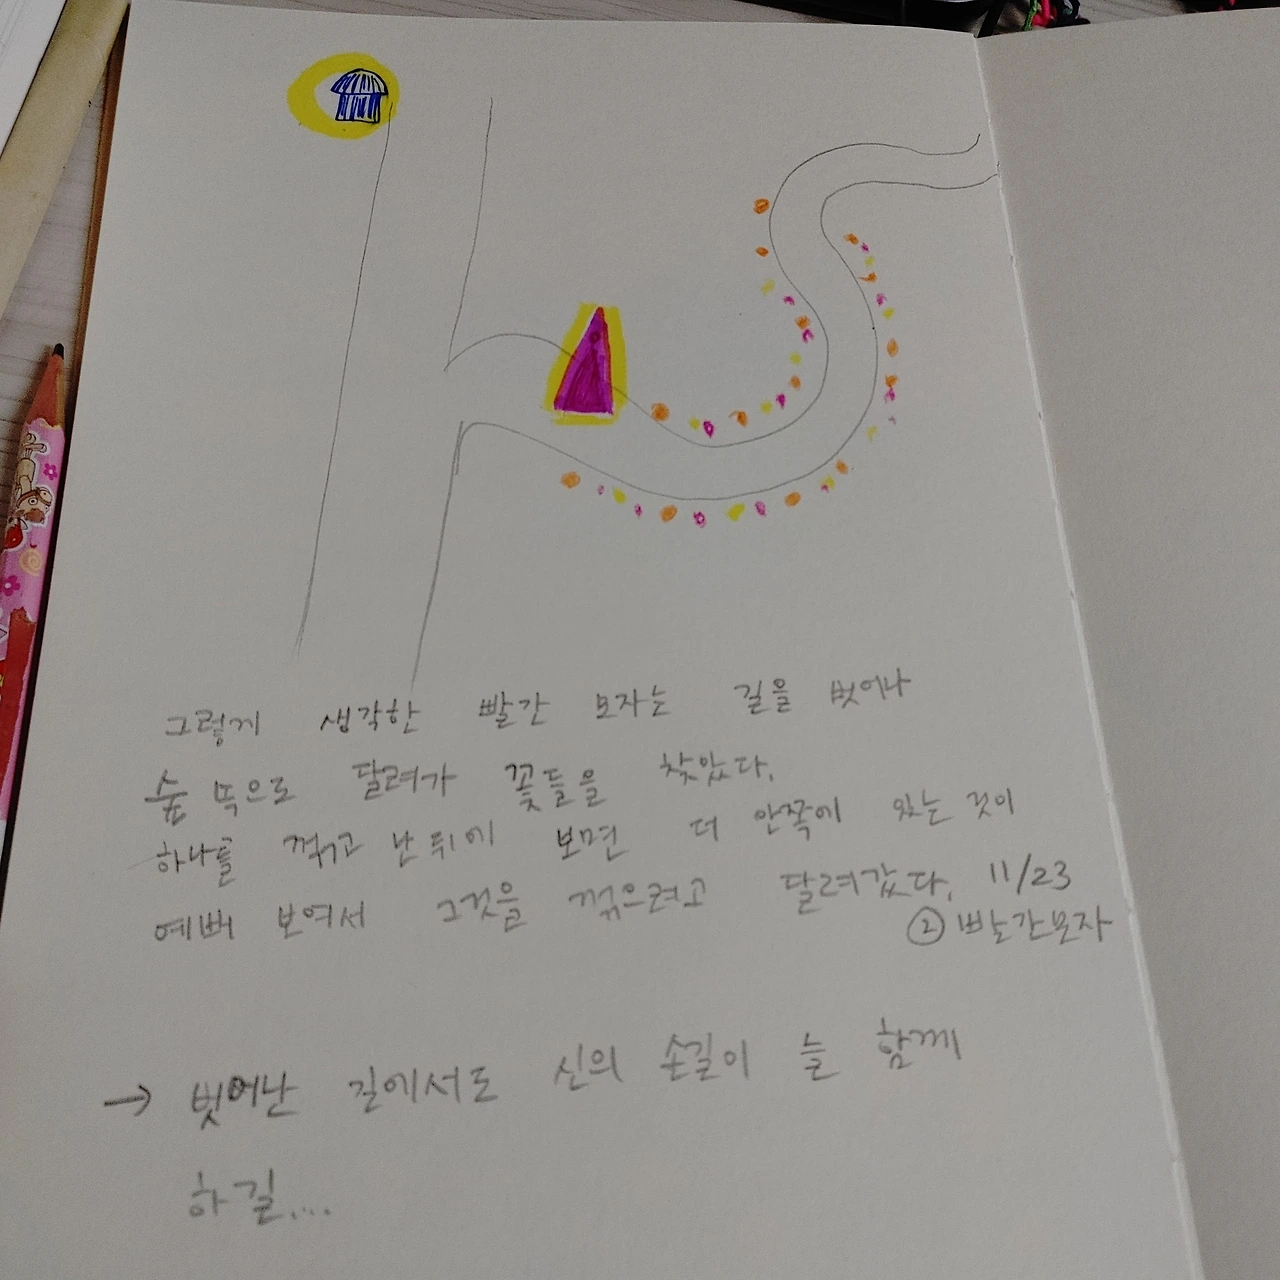 그렇게 생각한 빨간 모자는 길을 벗어나
숲 뜩으로 달려가 꽃들을 찾았다.
하나를 꺾고 난 뒤에 보면 더 안쪽에 있는 것이
예뻐 보여서 그것을 꺾으려고 달려갔다. 11/23
② 빨간모자
→ 벗어난 길에서도 신의 손길이 늘 함께
하길....